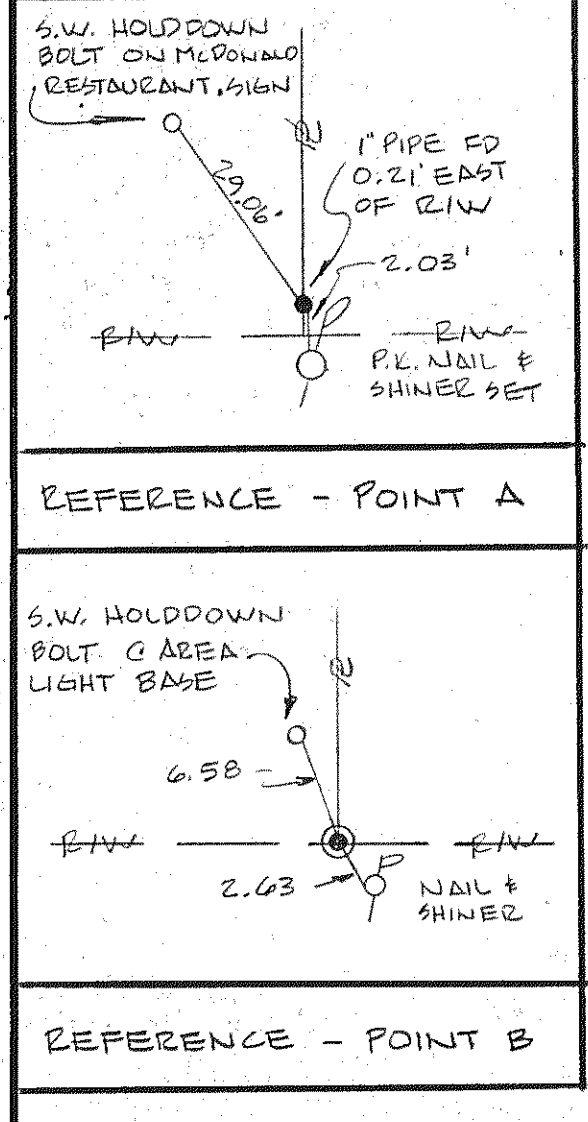 S.W. HOLDDOWN
BOLT ON McDONALD
RESTAURANT SIGN
29.06
1" PIPE FD
0.21' EAST
OF R/W
2.03'
R/W
R/W
P.K. NAIL &
SHINER SET
REFERENCE - POINT A
S.W. HOLDDOWN
BOLT @ AREA
LIGHT BASE
6.58
R/W
R/W
2.63
NAIL &
SHINER
REFERENCE - POINT B